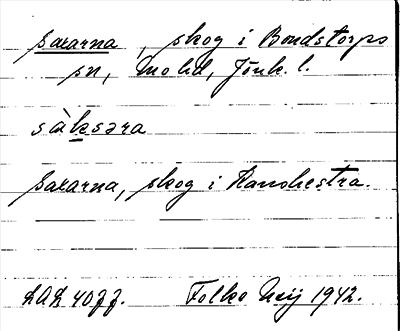 Saxarna, skog i Bondstorps
sn, Mo hd, Jönk. l.
sàksəra
Saxarna, skog i
LAL 4077. Folke Neij 1942.